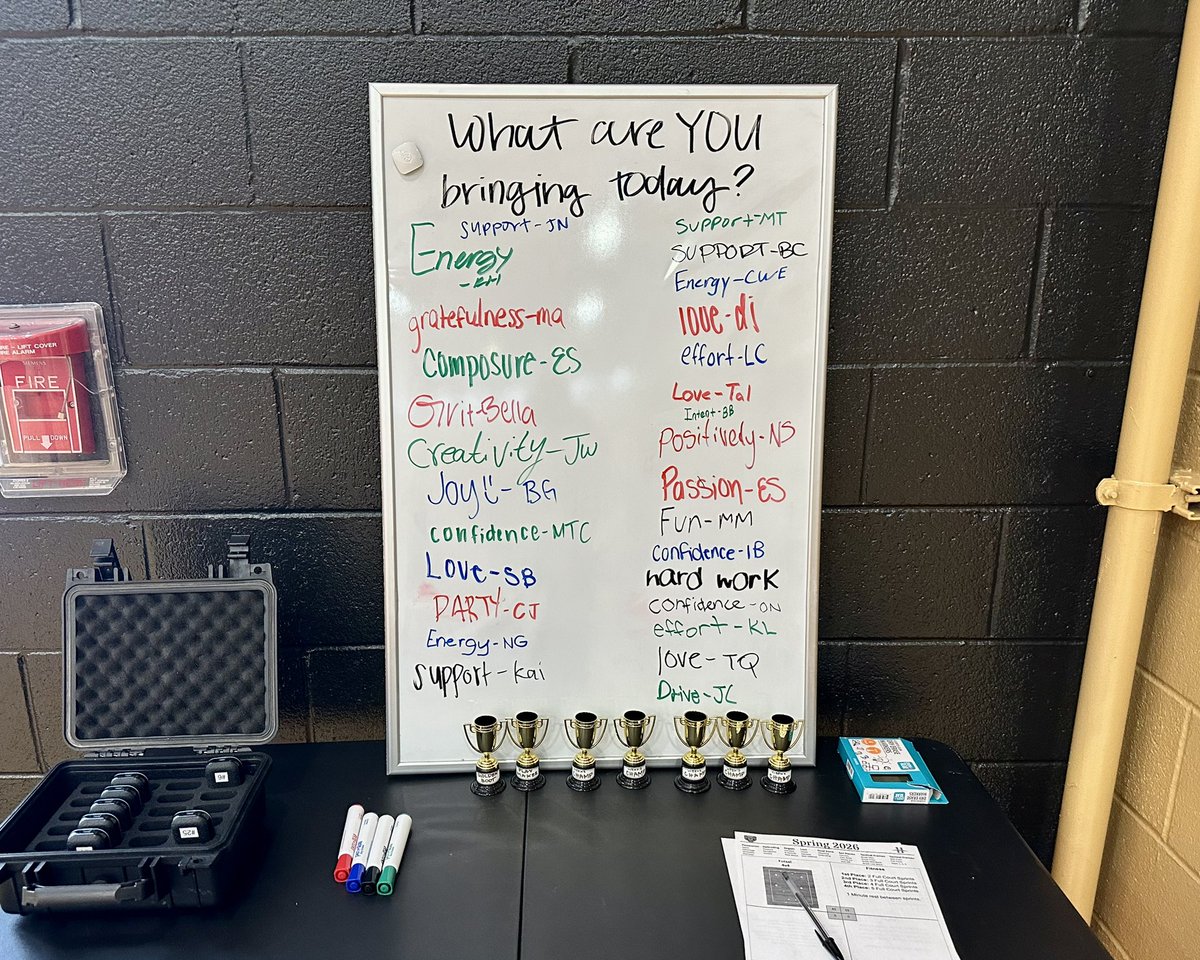 What are YOU
bringing today?
Support-JN
Energy
gratefulness-ma
Composure-ES
Grit-Bella
Creativity-JW
Joy!-BG
confidence-MTC
Love-SB
PARTY-CJ
Energy-NG
support-kai
Support-MT
SUPPORT-BC
Energy-CWE
love-di
effort-LC
Love-Tal
Intent-BB
Positively-NS
Passion-ES
Fun-MM
Confidence-IB
hard work
Confidence-ON
effort-KL
love-TQ
Drive-JC
LIFT COVER
FIRE ALARM
SIEMENS
FIRE
PULL DOWN
#25
CHAMP
CHAMP
CHAMP
CHAMP
Spring 2026
Futsal
4v4
Fitness
1st Place: 2 Full Court Sprints
2nd Place: 3 Full Court Sprints
3rd Place: 4 Full Court Sprints
4th Place: 5 Full Court Sprints
1 Minute rest between sprints.